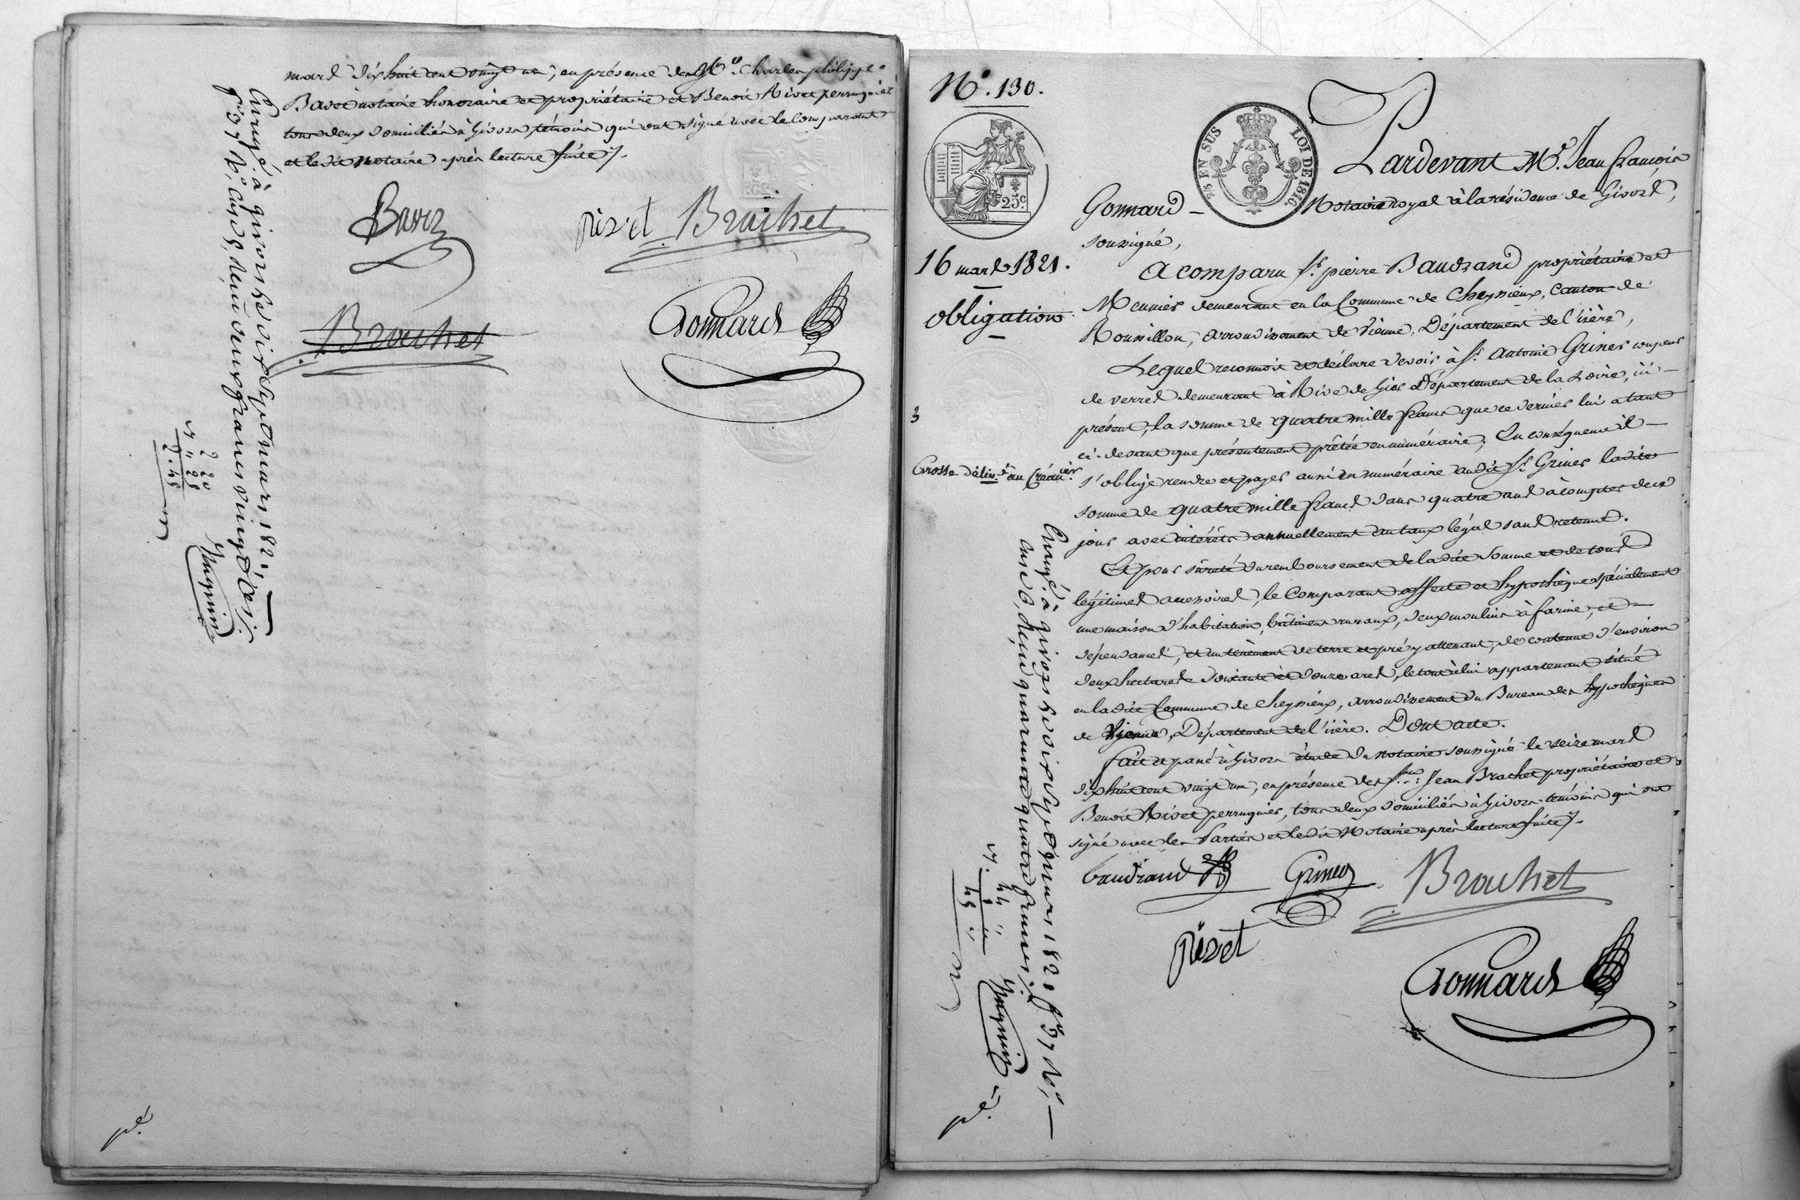 mars dix huit cent vingt un, en présence de Mrs Charles philippe
Bavoz notaire honoraire et propriétaire et Benoit Rivet perruquier
tous deux domiciliés à Givors témoins qui ont signé avec le Comparant
et ledit notaire après lecture faite ./.
rivet
Brachet
Brachet
Gonnard
Enregé à givors le dix sept mars 1821,
fo 37 Ro, Cases, reçu deux francs vingt
2 20
22
2.42
N°. 130.
25 EN SUS LOI DE 1816
25c
16 mars 1821.
obligation
Grosse déliv.ée au Créancier.
Pardevant Me. Jean françois
Gonnard – Notaire royal à la résidence de Givors,
soussigné,
A comparu Sr. pierre Baudrand propriétaire et
Meunier demeurant en la Commune de Cheyssieux, Canton de
Roussillon, arrondissement de Vienne, Département de l'isère,
Lequel reconnoit et déclare devoir à Sr. Antoine Griner coupeur
de verres demeurant à Rive de Gier Département de la Loire, ici –
présent, la somme de quatre mille francs que ce dernier lui a tant
ci-devant que présentement prêtée en numéraire, En conséquence il –
s'oblige rendre et payer aussi en numéraire audit Sr. Griner ladite
somme de quatre mille francs dans quatre ans à compter de ce
jour avec intérêts annuellement au taux légal sans retenue.
Et pour sûreté du remboursement de ladite Somme et de tous
légitimes accessoires, le Comparant affecte et hypothèque spécialement
une maison d'habitation, bâtiments ruraux, deux moulins à farine, et –
dépendances, et un tènement de terre et pré y attenant, de contenue d'environ
deux hectares soixante et douze ares, le tout à lui appartenant situé
en ladite Commune de Cheyssieux, arrondissement du Bureau des hypothèques
de Vienne, Département de l'isère. Dont acte.
fait et passé à Givors étude du notaire soussigné le seize mars
dix huit cent vingt un, en présence des Srs. Jean Brachet propriétaire et
Benoit Rivet perruquier, tous deux domiciliés à Givors témoins qui ont
signé avec les Parties et ledit Notaire après lecture faite ./.
baudrand
Griner
Brachet
rivet
Gonnard
Enregé à givors le dix sept mars 1821 fo 37 Ro, –
case 6, reçu quarante quatre francs
44